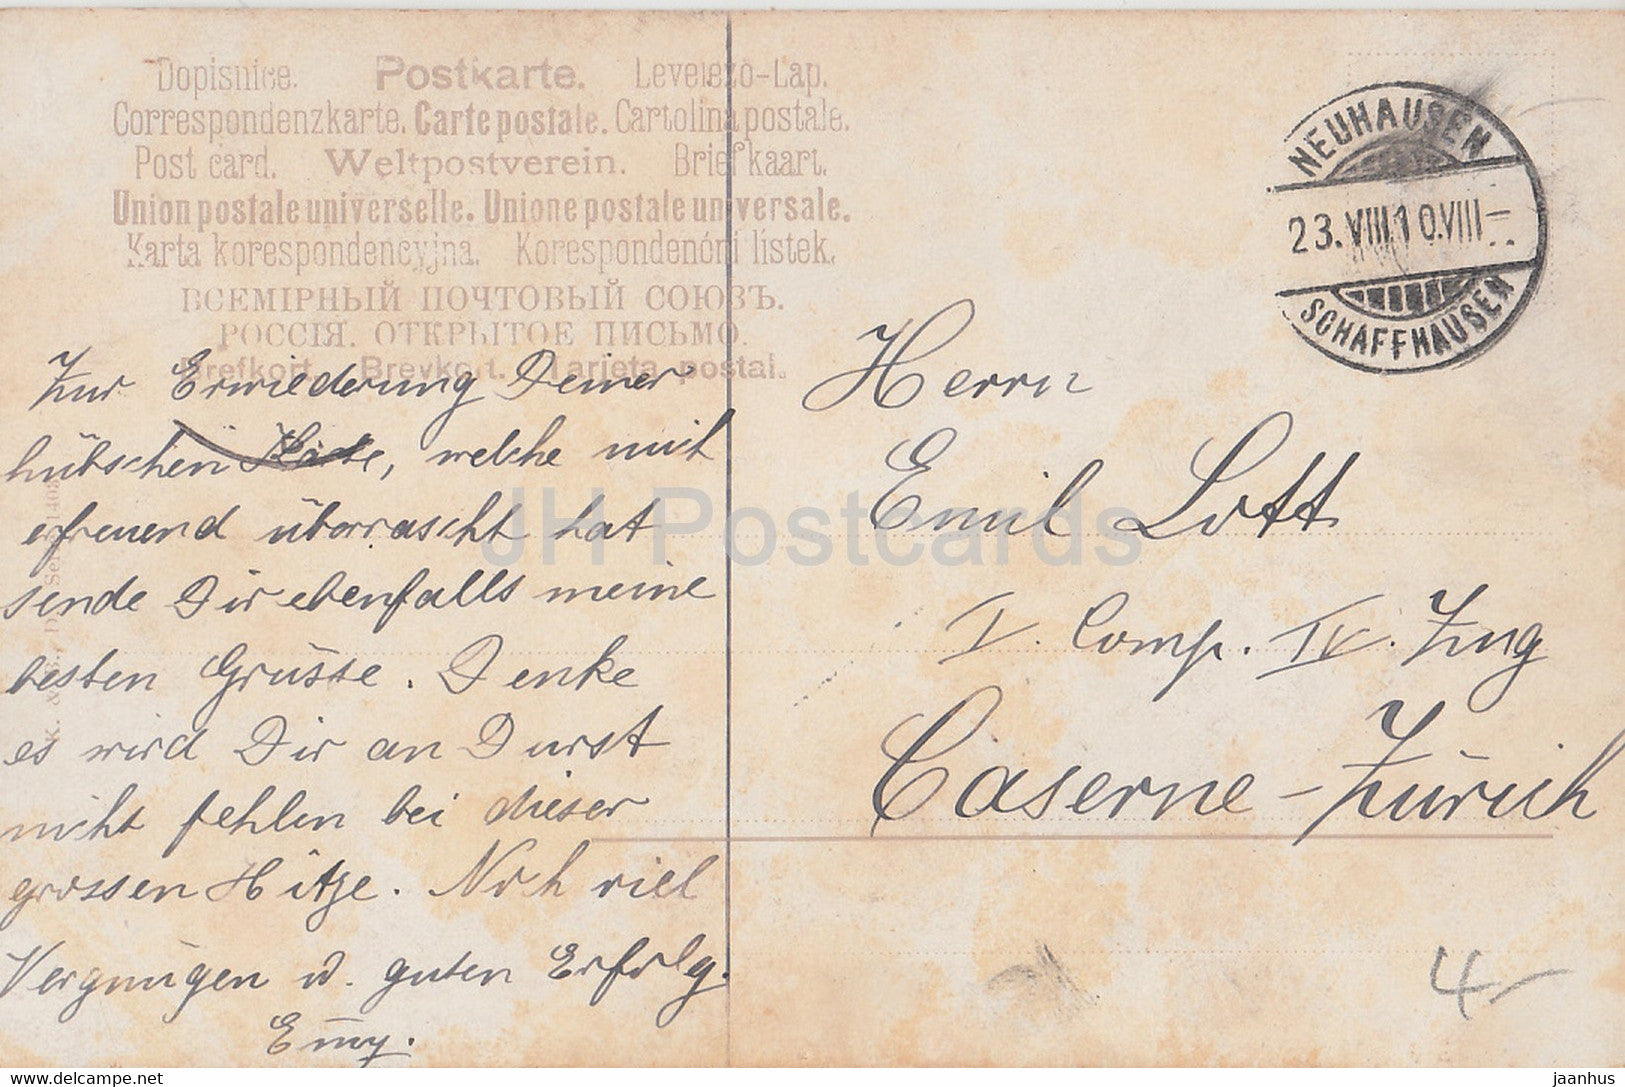 Dopisnice. Postkarte. Levelező-Lap.
Correspondenzkarte. Carte postale. Cartolina postale.
Post card. Weltpostverein. Briefkaart.
Union postale universelle. Unione postale universale.
Karta korespondencyjna. Korespondenční lístek.
ВСЕМІРНЫЙ ПОЧТОВЫЙ СОЮЗЪ.
РОССІЯ. ОТКРЫТОЕ ПИСЬМО.
Brefkort. Brevkort. Tarjeta postal.
NEUHAUSEN
23.VIII.10.VIII-
SCHAFFHAUSEN
Zur Erwiederung Deiner
hübschen Karte, welche mich
erfreuend überrascht hat
sende Dir ebenfalls meine
besten Grüsse. Denke
es wird Dir an Durst
nicht fehlen bei dieser
grossen Hitze. Noch viel
Vergnügen u. guten Erfolg.
Emmy.
Herrn
Emil Lott
V. Comp. IV. Zug
Caserne - Zürich
4-
JH Postcards
K. & B., D. Serie 1408
https://www.delcampe.net
jaanhus